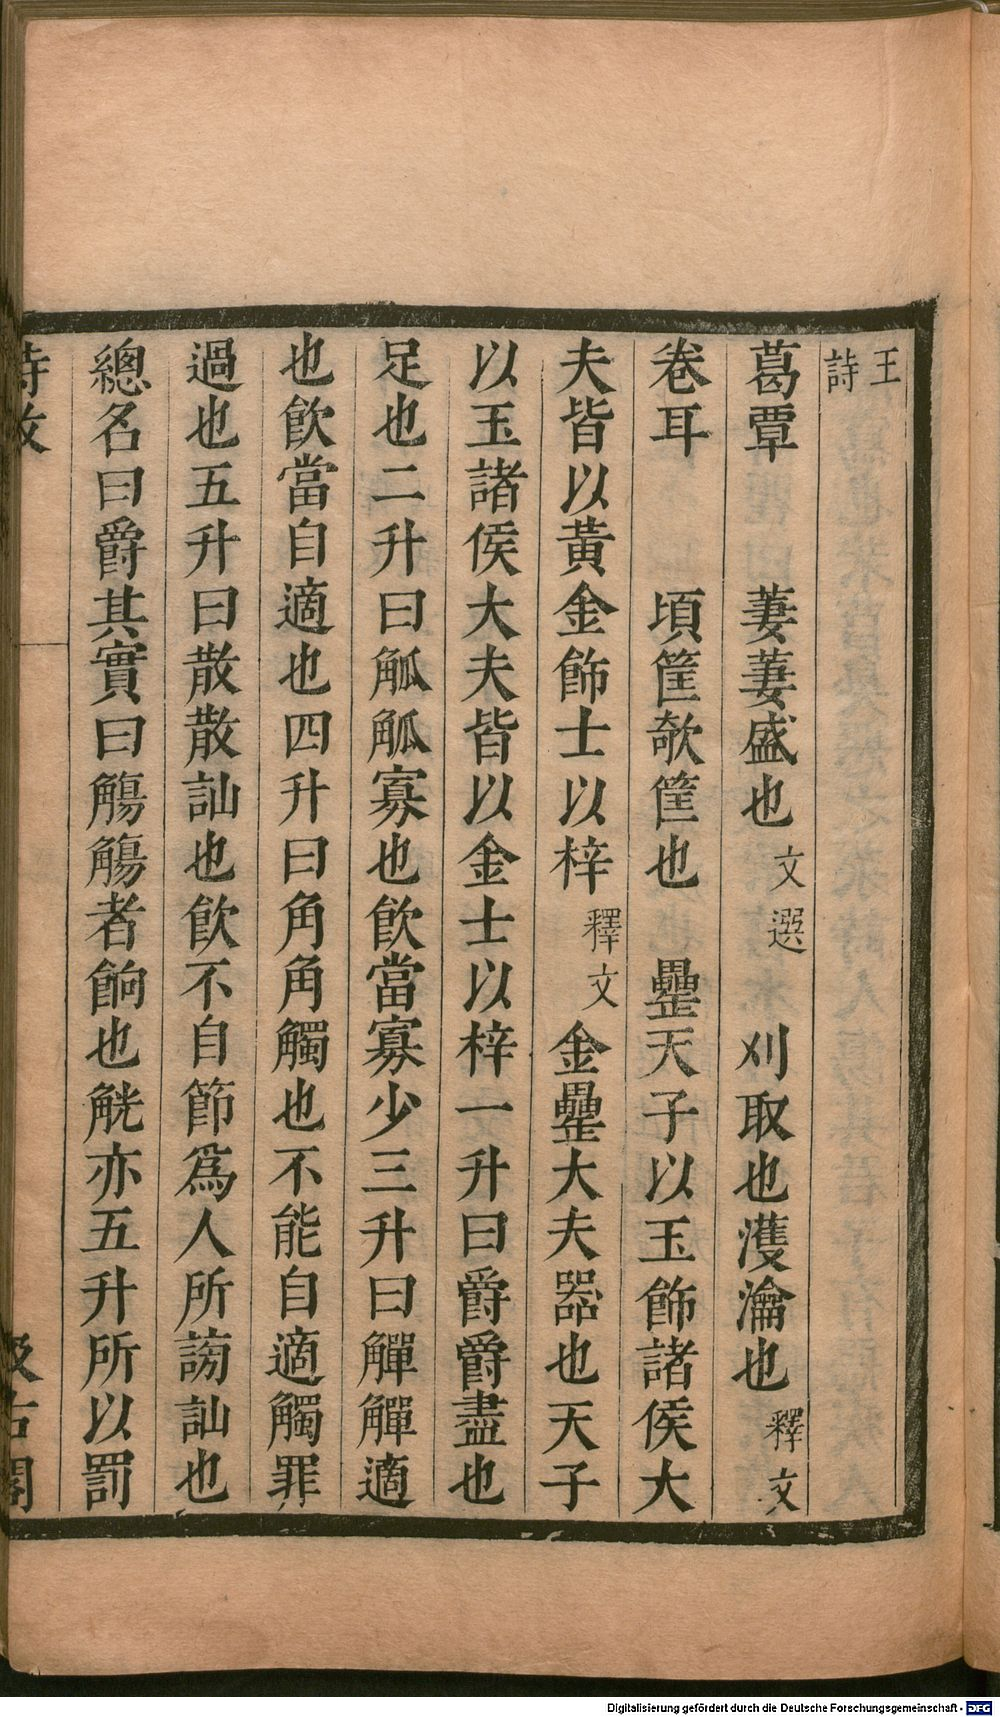 王詩
葛覃　萋萋盛也文選　刈取也濩瀹也釋文
卷耳　頃筐欹筐也　罍天子以玉飾諸侯大
夫皆以黃金飾士以梓釋文　金罍大夫器也天子
以玉諸侯大夫皆以金士以梓一升曰爵爵盡也
足也二升曰觚觚寡也飲當寡少三升曰觶觶適
也飲當自適也四升曰角角觸也不能自適觸罪
過也五升曰散散訕也飲不自節爲人所謗訕也
總名曰爵其實曰觴觴者餉也觥亦五升所以罰
詩攷
汲古閣
Digitalisierung gefördert durch die Deutsche Forschungsgemeinschaft - DFG